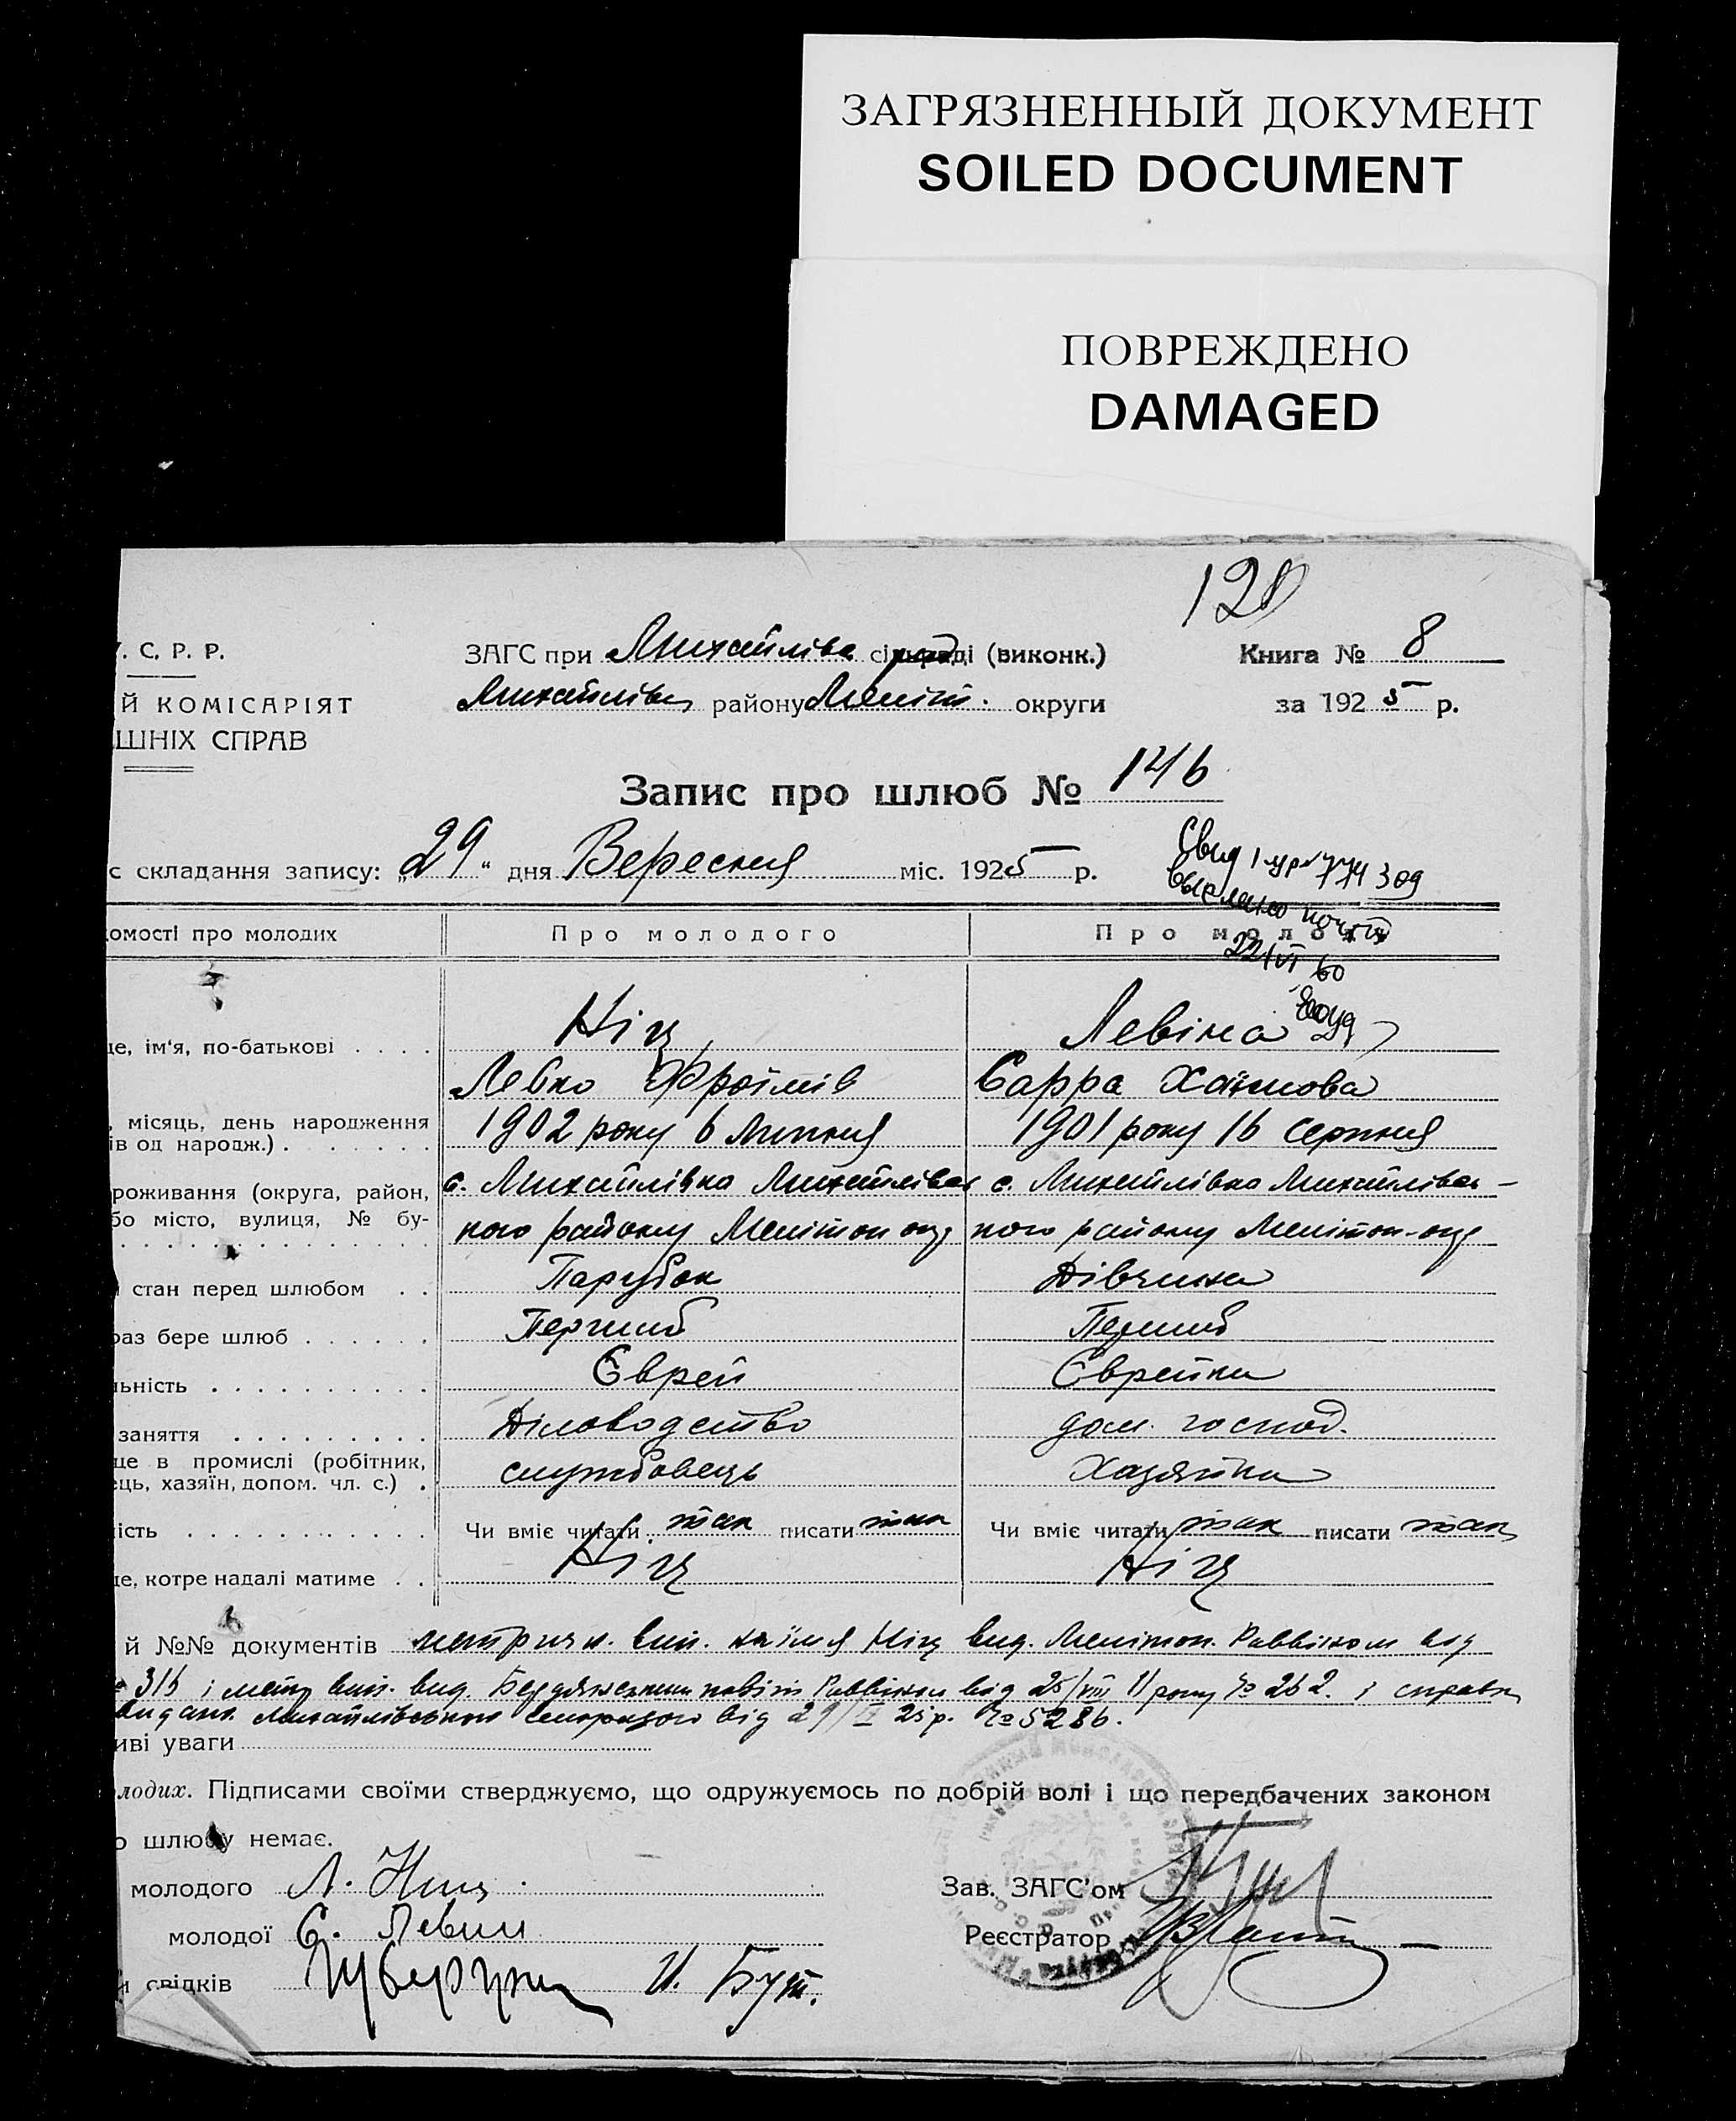 ЗАГРЯЗНЕННЫЙ ДОКУМЕНТ
SOILED DOCUMENT
ПОВРЕЖДЕНО
DAMAGED
120
. С. Р. Р.
ЗАГС при Михайлівс сільраді (виконк.)
Книга № 8
Й КОМІСАРІЯТ
Михайлівськ району Меліт. округи
за 1925 р.
ШНІХ СПРАВ
Запис про шлюб № 146
с складання запису: „29“ дня Вересня міс. 1925 р.
Свид 774309
выслано почтой
22/VI 60
омості про молодих
Про молодого
Про молод
це, ім‘я, по-батькові
Ніц
Левко Фроїмів
Левіна
Сарра Хаїмова
, місяць, день народження
ів од народж.)
1902 року 6 Липня
1901 року 16 Серпня
роживання (округа, район,
бо місто, вулиця, № бу-
с. Михайлівка Михайлівсь
кого району Мелітоп окр
с. Михайлівка Михайлівсь-
кого району Мелітоп-окр
стан перед шлюбом
Парубок
Дівчина
раз бере шлюб
Перший
Перший
льність
Єврей
Єврейка
заняття
Діловодство
дом. господ.
це в промислі (робітник,
ець, хазяїн, допом. чл. с.)
службовець
Хазяйка
ість
Чи вміє читати так писати так
Чи вміє читати так писати так
це, котре надалі матиме
Ніц
Ніц
й №№ документів метричн. вип. на ім'я Ніц вид. Мелітоп. Раввіном від
№ 316 і метр вип. вид. Бердянським повіт Раввіном від 25/VIII 11 року № 262. і справки
видана Михайлівською від 29/IX 25 р. № 5286.
иві уваги
лодих. Підписами своїми стверджуємо, що одружуємось по добрій волі і що передбачених законом
о шлюбу немає.
молодого Л. Ниц
Зав. ЗАГС'ом
молодої С. Левин
Реєстратор
и свідків
И. Бут.